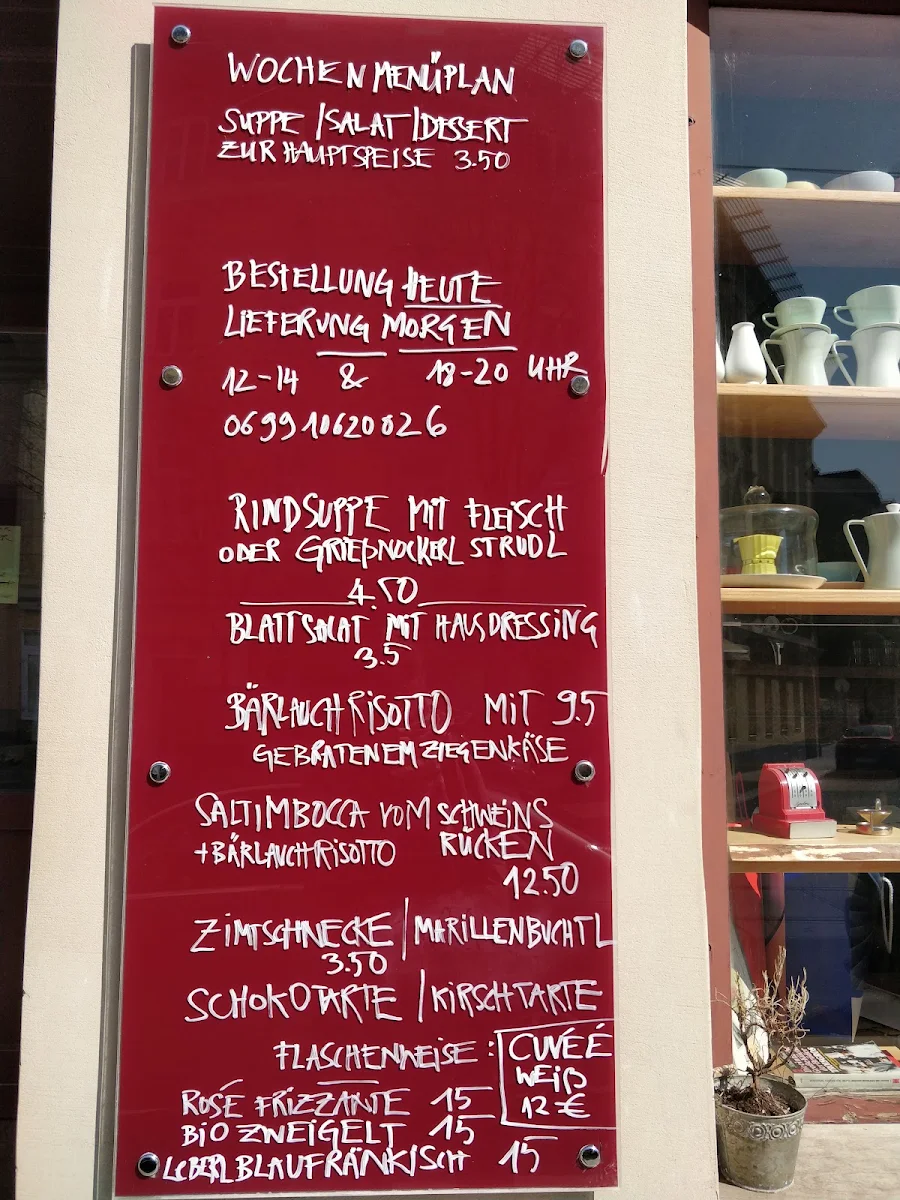 WOCHENMENÜPLAN
SUPPE /SALAT/DESSERT
ZUR HAUPTSPEISE 3.50
BESTELLUNG HEUTE
LIEFERUNG MORGEN
12-14 & 18-20 UHR
069910620826
RINDSUPPE MIT FLEISCH
ODER GRIEßNOCKERL STRUDL
4.50
BLATTSALAT MIT HAUSDRESSING
3.5
BÄRLAUCHRISOTTO MIT 9.5
GEBRATENEM ZIEGENKÄSE
SALTIMBOCCA VOM SCHWEINS
+BÄRLAUCHRISOTTO RÜCKEN
12.50
ZIMTSCHNECKE /MARILLENBUCHTL
3.50
SCHOKOTARTE /KIRSCHTARTE
FLASCHENWEISE :
CUVÉÉ
WEIß
12 €
ROSÉ FRIZZANTE 15
BIO ZWEIGELT 15
BLAUFRÄNKISCH 15